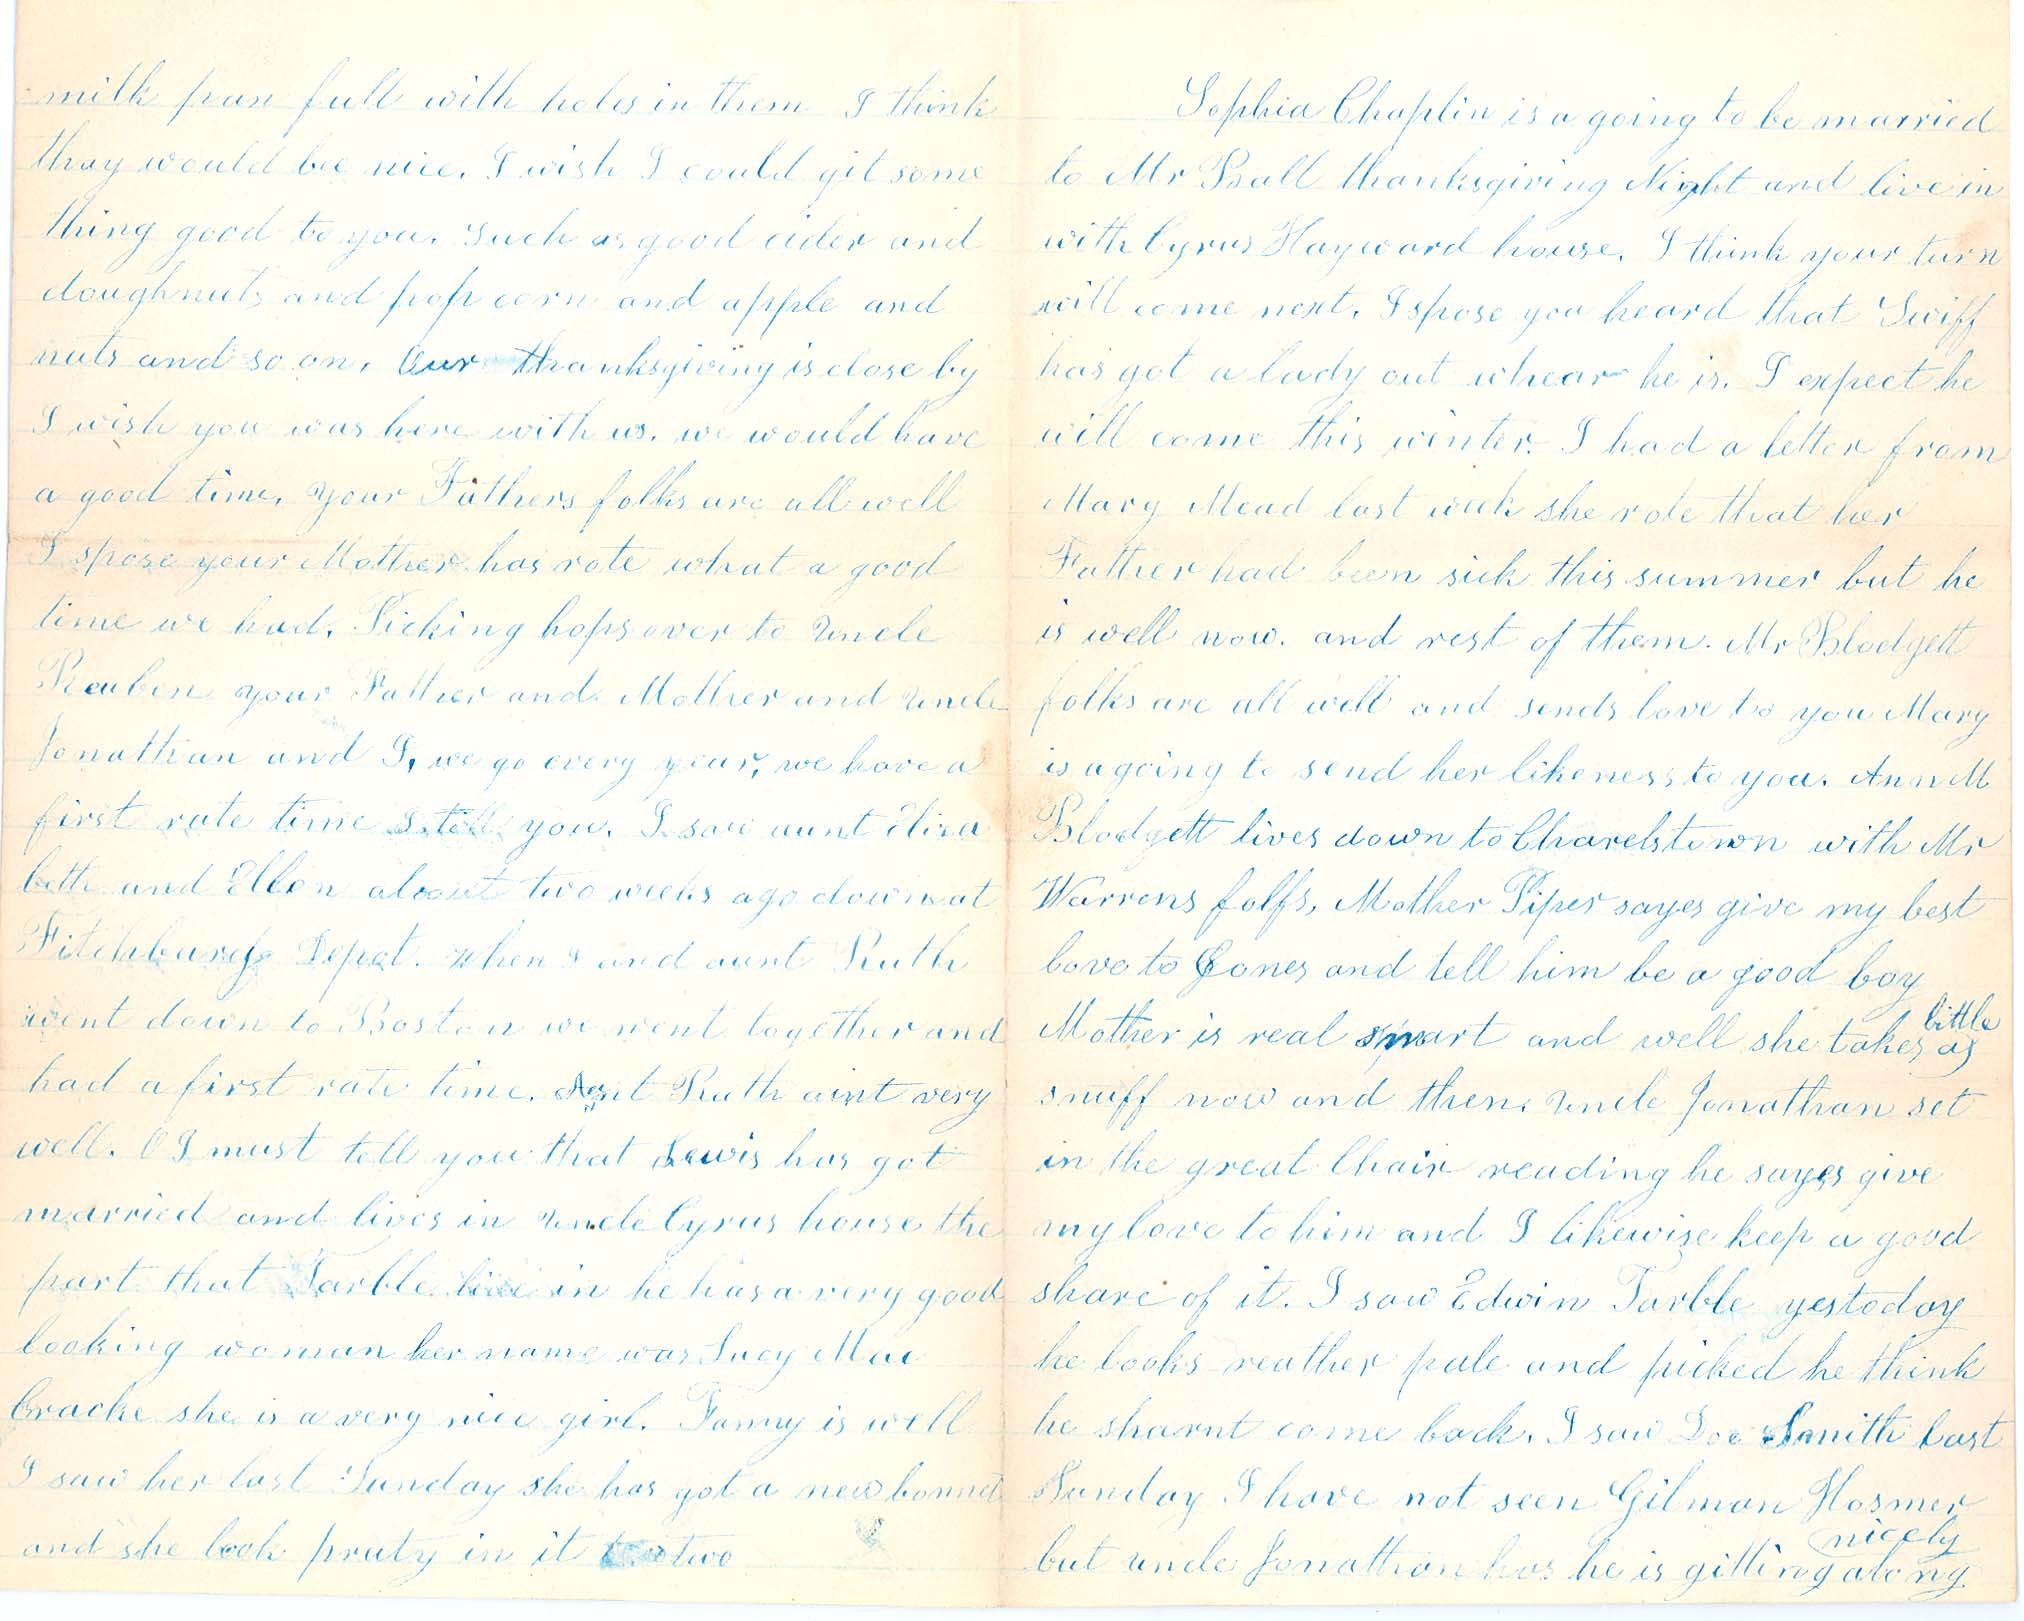 milk pan full with holes in them I think
thay would bee nice. I wish I could git some
thing good to you. Such as good cider and
doughnuts and pop corn and apple and
nuts and so on. Our thanksgiving is close by
I wish you was here with us. we would have
a good time. your Fathers folks are all well
I spose your Mother has rote what a good
time we had. Picking hops over to Uncle
Reuben your Father and Mother and Uncle
Jonathan and I, we go every year, we have a
first rate time I tell you. I saw aunt Eliza
beth and Ellen about two weeks ago down at
Fitchburg Depot. When I and aunt Ruth
went down to Boston we went together and
had a first rate time. Aunt Ruth aint very
well. O I must tell you that Lewis has got
married and lives in Uncle Cyrus house the
part that Tarble live in he has a very good
looking woman her name was Lucy Mac
Cracke she is a very nice girl. Fanny is well
I saw her last Sunday she has got a new bonnet
and she look pruty in it two
Sophia Chaplin is a going to be married
to Mr Ball thanksgiving Night and live in
with Cyrus Hayward house. I think your turn
will come next. I spose you heard that Swiff
has got a lady out whear he is. I expect he
will come this winter. I had a letter from
Mary Mead last week she rote that her
Father had been sick this summer but he
is well now. and rest of them. Mr Blodgett
folks are all well and sends love to you Mary
is agoing to send her likeness to you. Ann M
Blodgett lives down to Charelstown with Mr
Warrens folfs, Mother Piper sayes give my best
love to Jones and tell him be a good boy
Mother is real smart and well she takes a little
snuff now and then. Uncle Jonathan set
in the great Chair reading he sayes give
my love to him and I likewise keep a good
share of it. I saw Edwin Tarble yestoday
he looks reather pale and picked he think
he sharnt come back. I saw Doc Smith last
Sunday I have not seen Gilman Hosmer
but uncle Jonathan has he is gitting along nicely